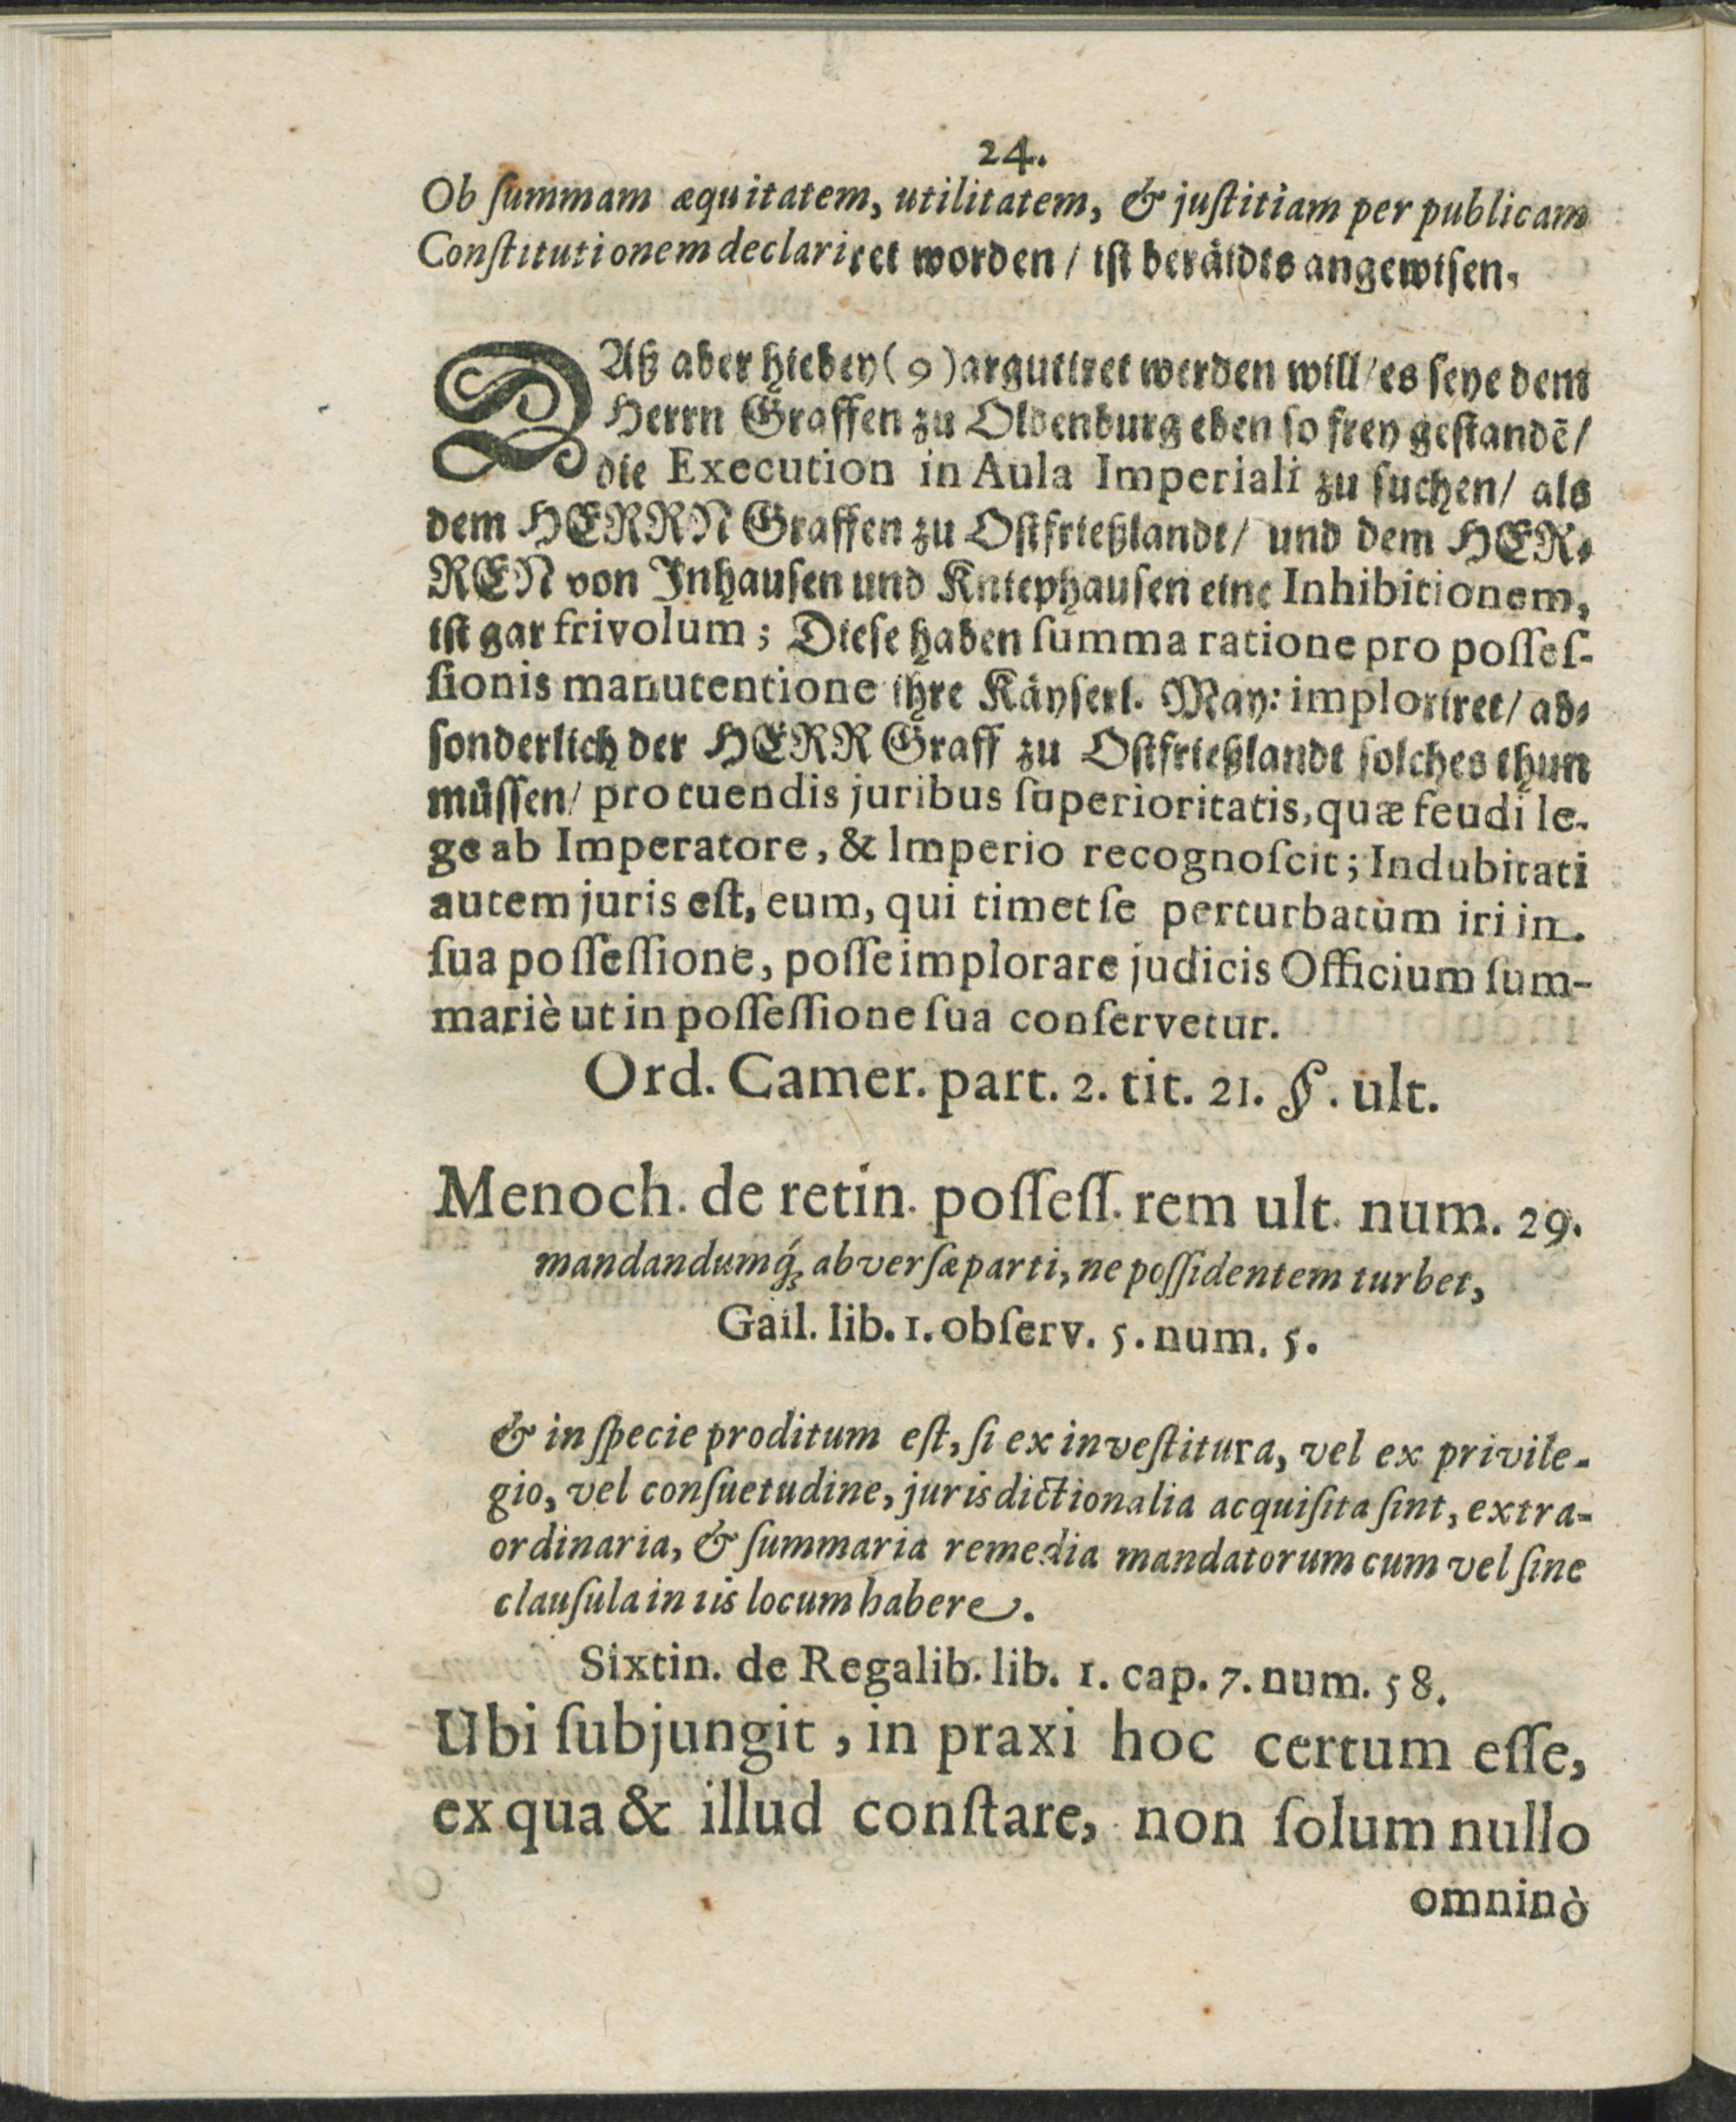 24.
Ob ſummam æquitatem, utilitatem, & juſtitiam per publicam
Conſtitutionem declariret worden / iſt beräidts angewiſen.
DAß aber hiebey (9) argutiret werden will / es ſeye dem
Herrn Graffen zu Oldenburg eben ſo frey geſtandē /
die Execution in Aula Imperiali zu ſuchen / als
dem HERRN Graffen zu Oſtfrießlandt / und dem HER-
REN von Inhauſen und Kniephauſen eine Inhibitionem,
iſt gar frivolum; Dieſe haben ſumma ratione pro poſſeſ-
ſionis manutentione ihre Käyſerl. May: imploriret / ab-
ſonderlich der HERR Graff zu Oſtfrießlandt ſolches thun
müſſen / pro tuendis juribus ſuperioritatis, quæ feudi le-
ge ab Imperatore, & Imperio recognoſcit; Indubitati
autem juris eſt, eum, qui timet ſe perturbatum iri in
ſua poſſeſſione, poſſe implorare judicis Officium ſum-
mariè ut in poſſeſſione ſua conſervetur.
Ord. Camer. part. 2. tit. 21. §. ult.
Menoch. de retin. poſſeſſ. rem ult. num. 29.
mandandumq́ʒ abverſæ parti, ne poſſidentem turbet,
Gail. lib. 1. obſerv. 5. num. 5.
& in ſpecie proditum eſt, ſi ex inveſtitura, vel ex privile-
gio, vel conſuetudine, jurisdictionalia acquiſita ſint, extra-
ordinaria, & ſummaria remedia mandatorum cum vel ſine
clauſula in iis locum habere.
Sixtin. de Regalib. lib. 1. cap. 7. num. 58.
Ubi ſubjungit, in praxi hoc certum eſſe,
ex qua & illud conſtare, non ſolum nullo
omninò